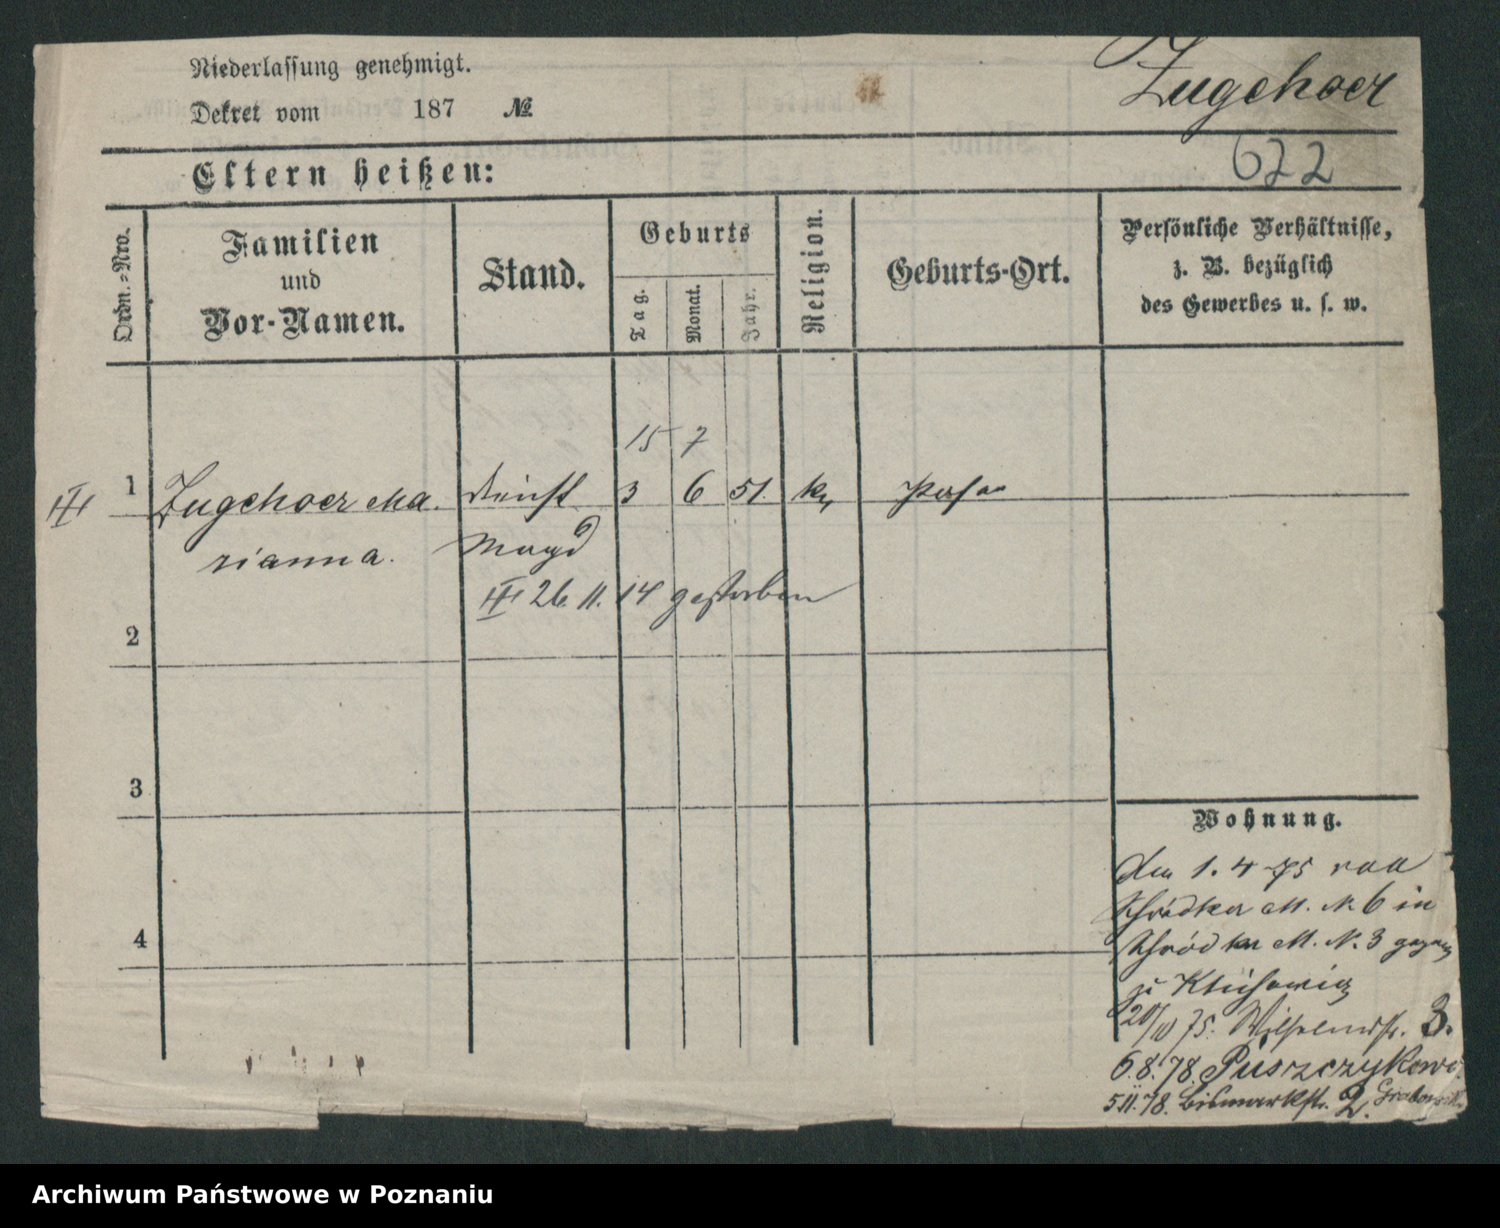 Niederlassung genehmigt.
Zugehoer
Dekret vom 187 №
672
Eltern heißen:
Ordn.=Nro.
Familien
und
Vor-Namen.
Stand.
Geburts
Tag.
Monat.
Jahr.
Religion.
Geburts-Ort.
Persönliche Verhältnisse,
z. B. bezüglich
des Gewerbes u. s. w.
15 7
III 1 Zugehoer Ma. Dienst 3 6 51. k. Posen
rianna. Magd
III 26. 11. 14 gestorben
2
3
4
Wohnung.
Den 1. 4 75 von
Schrodka M. N. 6 in
Schrodka M. N. 3 gezogen
zu
20/10 75. Wilhelmstr. 3.
6.8.78. Puszczykowo
5.11.78. Bismarkstr. 2.
Archiwum Państwowe w Poznaniu